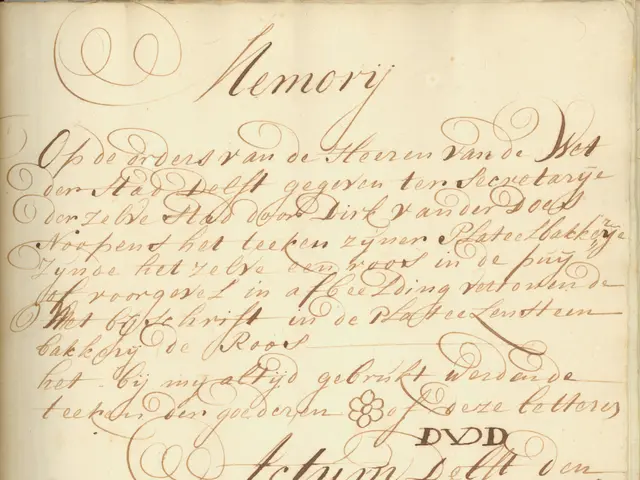 Memorij
Op de orders van de Heeren van de Wet
der Stad Delft gegeven ter Secretarije
der zelve Stad door Dirk van der Does
Noopens het teeken zijner Plateelbakkerije
Zijnde het zelve een roos in de puij
of voorgevel in afbeelding vertonende
Met bijschrift in de Plateelensteen
bakkerij de Roos
het bij mij altijd gebruikt werdende
teeken der goederen of deze letters
DVDD
Actum Delft den